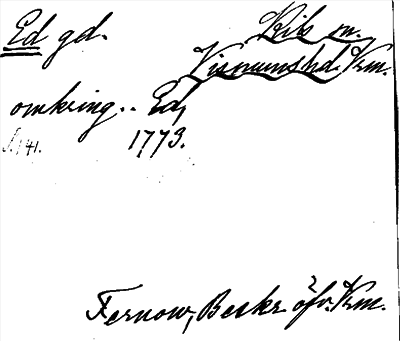 Ed gd. Kils sn.
Visnums hd. Krm.
omkring .. Ed,
S. 141. 1773.
Fernow, Beskr. öfv. Krm.